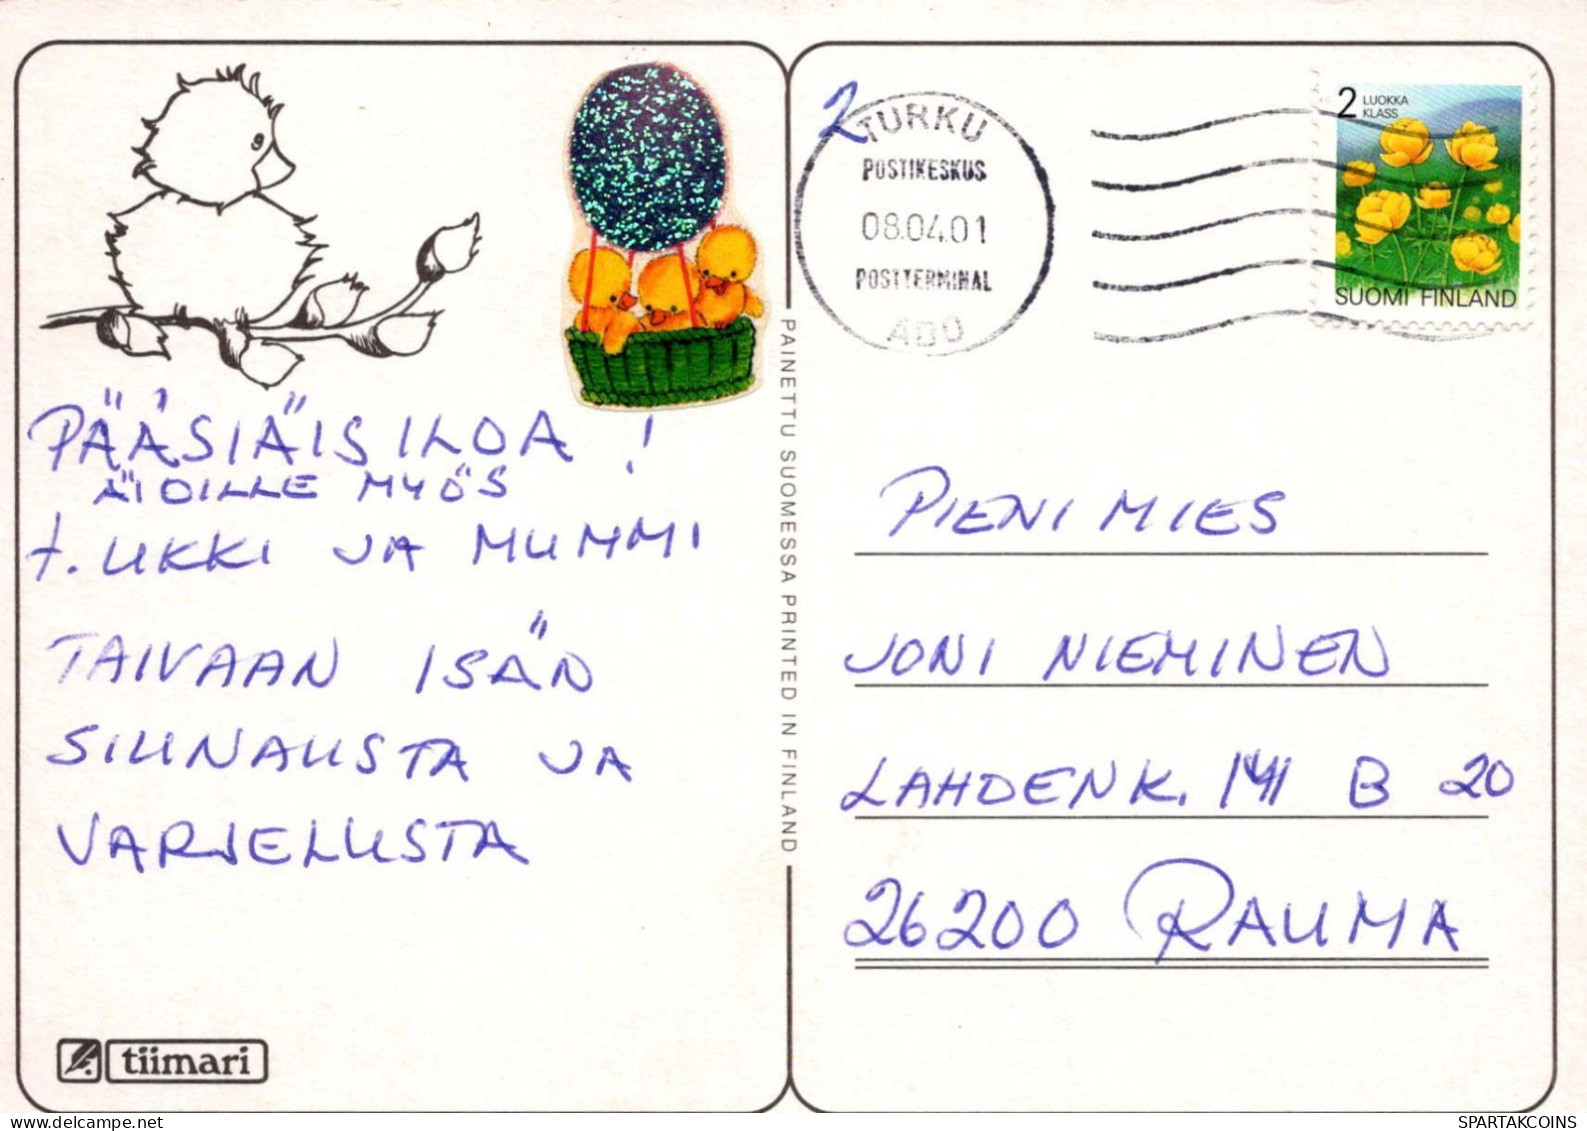 PÄÄSIÄISILOA !
ÄIDILLE MYÖS
t. UKKI JA MUMMI
TAIVAAN ISÄN
SIUNAUSTA JA
VARJELUSTA
tiimari
PAINETTU SUOMESSA PRINTED IN FINLAND
2
TURKU
POSTIKESKUS
08.04.01
POSTTERMINAL
ÅBO
2 LUOKKA
KLASS
SUOMI FINLAND
PIENI MIES
JONI NIEMINEN
LAHDENK. 141 B 20
26200 RAUMA
SPARTAKCOINS